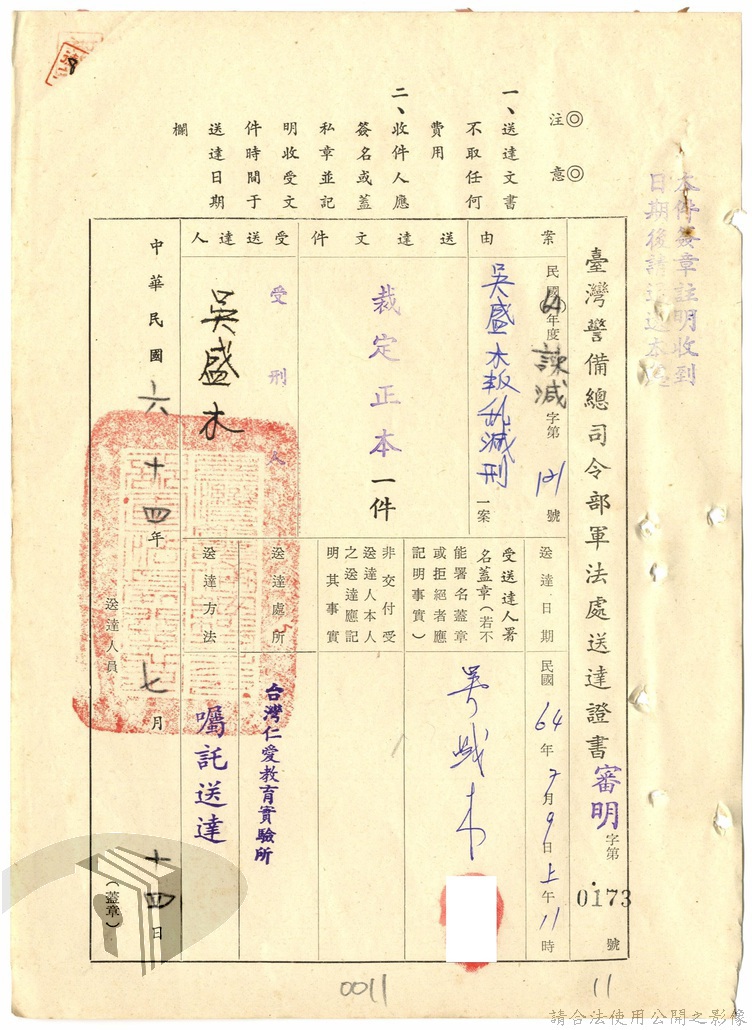 本件簽章註明收到
日期後請送還本處
臺灣警備總司令部軍法處送達證書 審明字第0173號
◎注意◎
一、送達文書
不取任何
費用
二、收件人應
簽名或蓋
私章並記
明收受文
件時間于
送達日期
欄
案由
民國64年度諫減字第121號
吳盛木叛乱減刑一案
送達文件
裁定正本一件
受送達人
受刑人
吳盛木
送達日期
民國64年7月9日上午11時
受送達人署
名蓋章(若不
能署名蓋章
或拒絕者應
記明事實)
吳盛木
非交付受
送達人本人
之送達應記
明其事實
送達處所
台灣仁愛教育實驗所
送達方法
囑託送達
中華民國六十四年七月十四日
送達人員(蓋章)
8
0011
11
請合法使用公開之影像